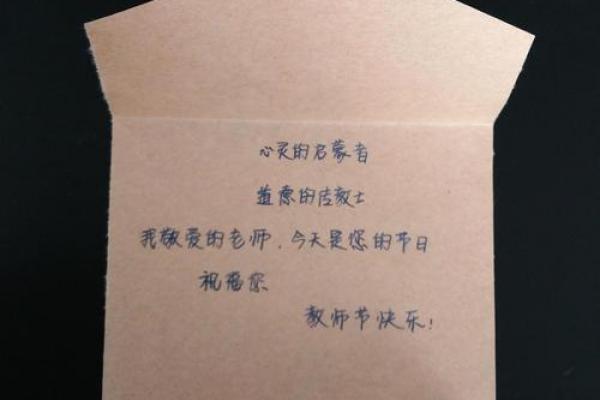 心灵的启蒙者
道德的传教士
我敬爱的老师，今天是您的节日
祝福您
教师节快乐！